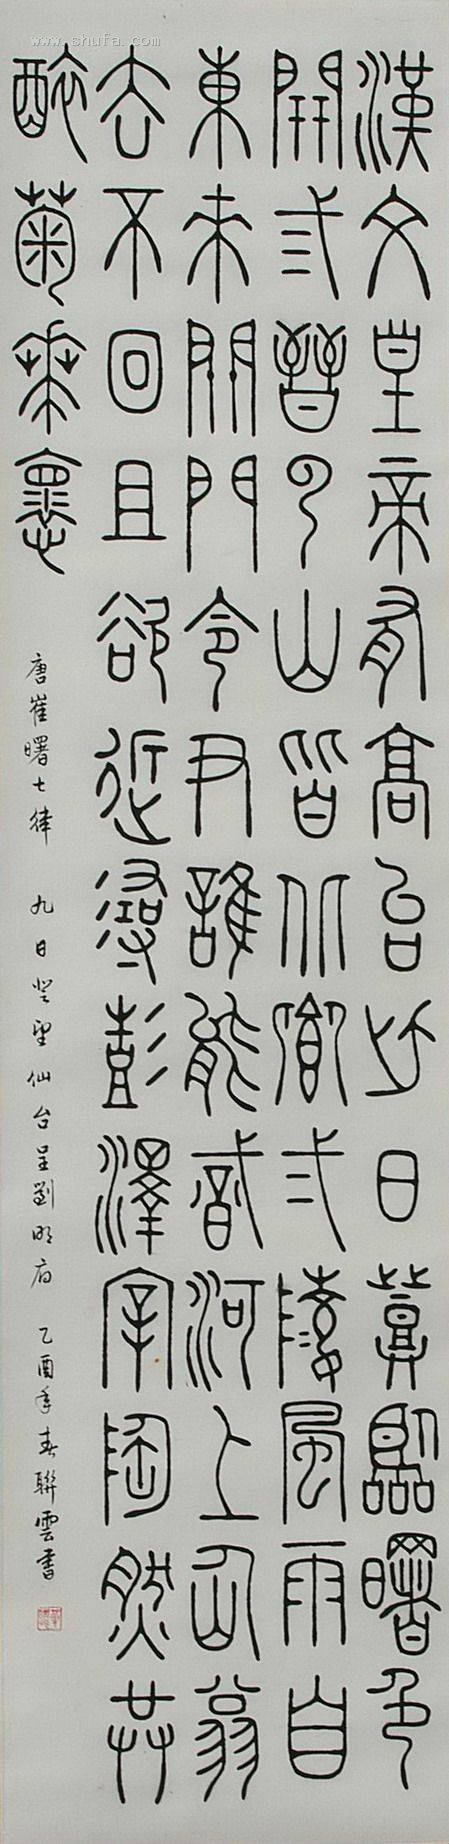 漢文皇帝有高台此日登臨曙色
開三晉云山皆北向二陵風雨自
東來關門令尹誰能識河上仙翁
去不回且欲近尋彭澤宰陶然共
醉菊花杯
唐崔曙七律 九日登望仙台呈劉明府 乙酉年春聯雲書
www.shufa.com